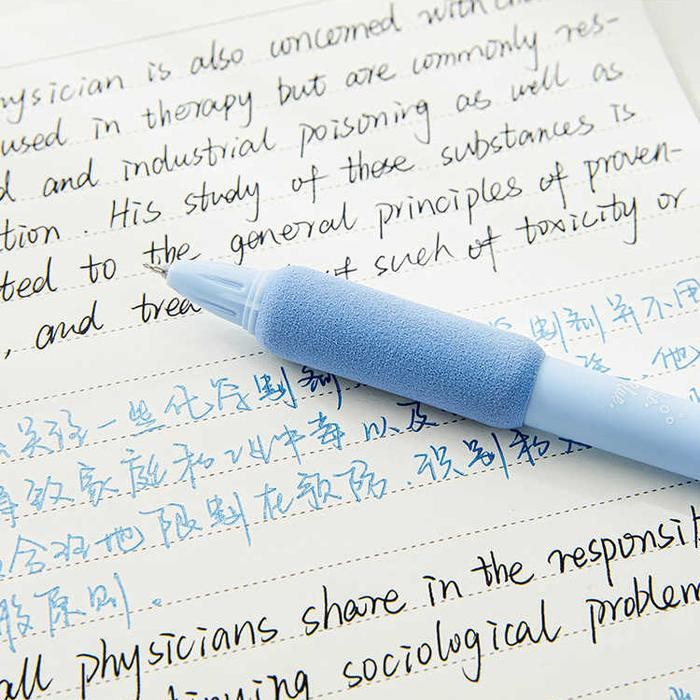 physician is also concerned with
used in therapy but are commonly res-
d and industrial poisoning as well as
tion. His study of these substances is
ted to the general principles of proven-
, and trea of such of toxicity or
关注一些化学制剂 制剂并不用
导致家庭和工业中毒以及 他
合理地限制在预防、识别和
般原则.
all physicians share in the responsib
sociological problem